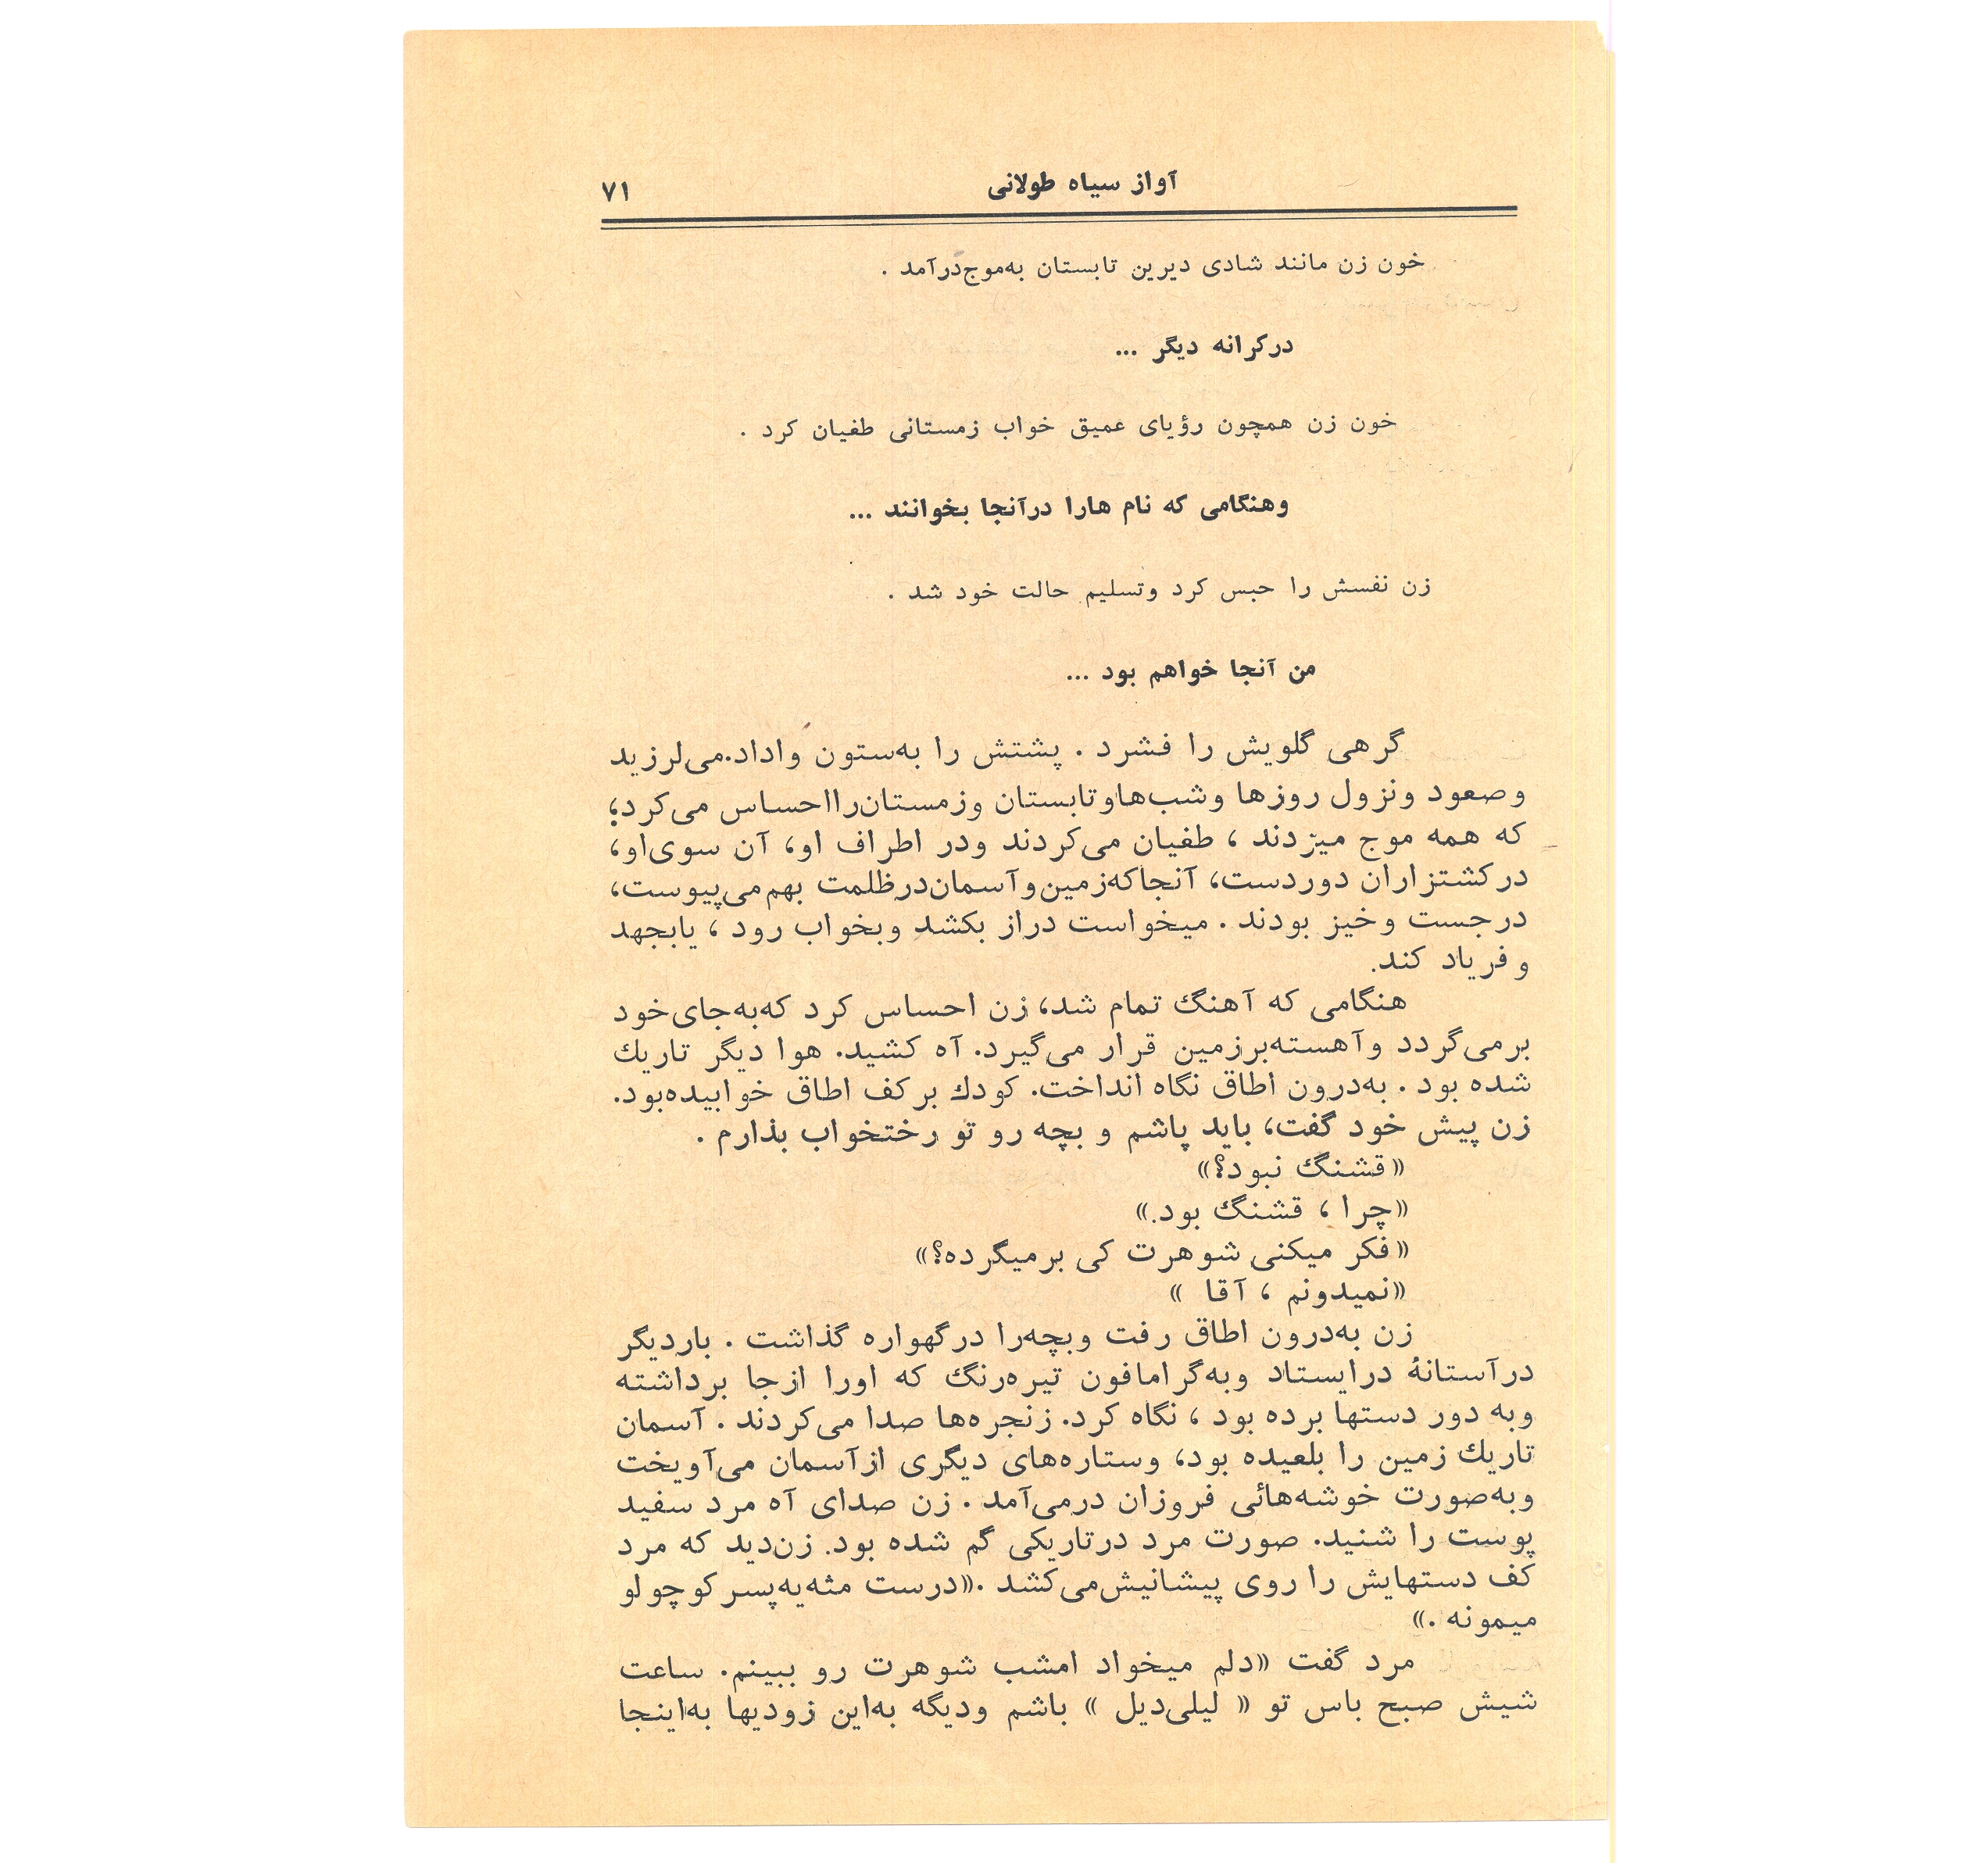 آواز سیاه طولانی ۷۱
خون زن مانند شادی دیرین تابستان به‌موج‌درآمد .
درکرانه دیگر ...
خون زن همچون رؤیای عمیق خواب زمستانی طفیان کرد .
وهنگامی که نام هارا درآنجا بخوانند ...
زن نفسش را حبس کرد وتسلیم حالت خود شد .
من آنجا خواهم بود ...
گرهی گلویش را فشرد . پشتش را به‌ستون واداد.می‌لرزید
وصعود ونزول روزها وشب‌هاوتابستان وزمستان‌رااحساس می‌کرد؛
که همه موج میزدند ، طفیان می‌کردند ودر اطراف او، آن سوی‌او،
درکشتزاران دوردست، آنجاکه‌زمین‌وآسمان‌درظلمت بهم‌می‌پیوست،
درجست وخیز بودند . میخواست دراز بکشد وبخواب رود ، یابجهد
وفریاد کند.
هنگامی که آهنگ تمام شد، زن احساس کرد که‌به‌جای‌خود
برمی‌گردد وآهسته‌برزمین قرار می‌گیرد. آه کشید. هوا دیگر تاریك
شده بود . به‌درون اطاق نگاه انداخت. کودك برکف اطاق خوابیده‌بود.
زن پیش خود گفت، باید پاشم و بچه رو تو رختخواب بذارم .
«قشنگ نبود؟»
«چرا ، قشنگ بود.»
«فکر میکنی شوهرت کی برمیگرده؟»
«نمیدونم ، آقا »
زن به‌درون اطاق رفت وبچه‌را درگهواره گذاشت . باردیگر
درآستانهٔ درایستاد وبه‌گرامافون تیره‌رنگ که اورا ازجا برداشته
وبه دور دستها برده بود ، نگاه کرد. زنجره‌ها صدا می‌کردند . آسمان
تاریك زمین را بلعیده بود، وستاره‌های دیگری ازآسمان می‌آویخت
وبه‌صورت خوشه‌هائی فروزان درمی‌آمد . زن صدای آه مرد سفید
پوست را شنید. صورت مرد درتاریکی گم شده بود. زن‌دید که مرد
کف دستهایش را روی پیشانیش‌می‌کشد .«درست مثه‌یه‌پسرکوچولو
میمونه .»
مرد گفت «دلم میخواد امشب شوهرت رو ببینم. ساعت
شیش صبح باس تو « لیلی‌دیل » باشم ودیگه به‌این زودیها به‌اینجا